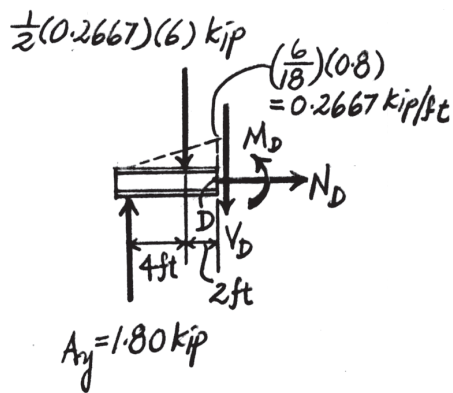 1/2(0.2667)(6) kip
(6/18)(0.8)
= 0.2667 kip/ft
M_D
N_D
D
V_D
4ft
2ft
A_y = 1.80 kip